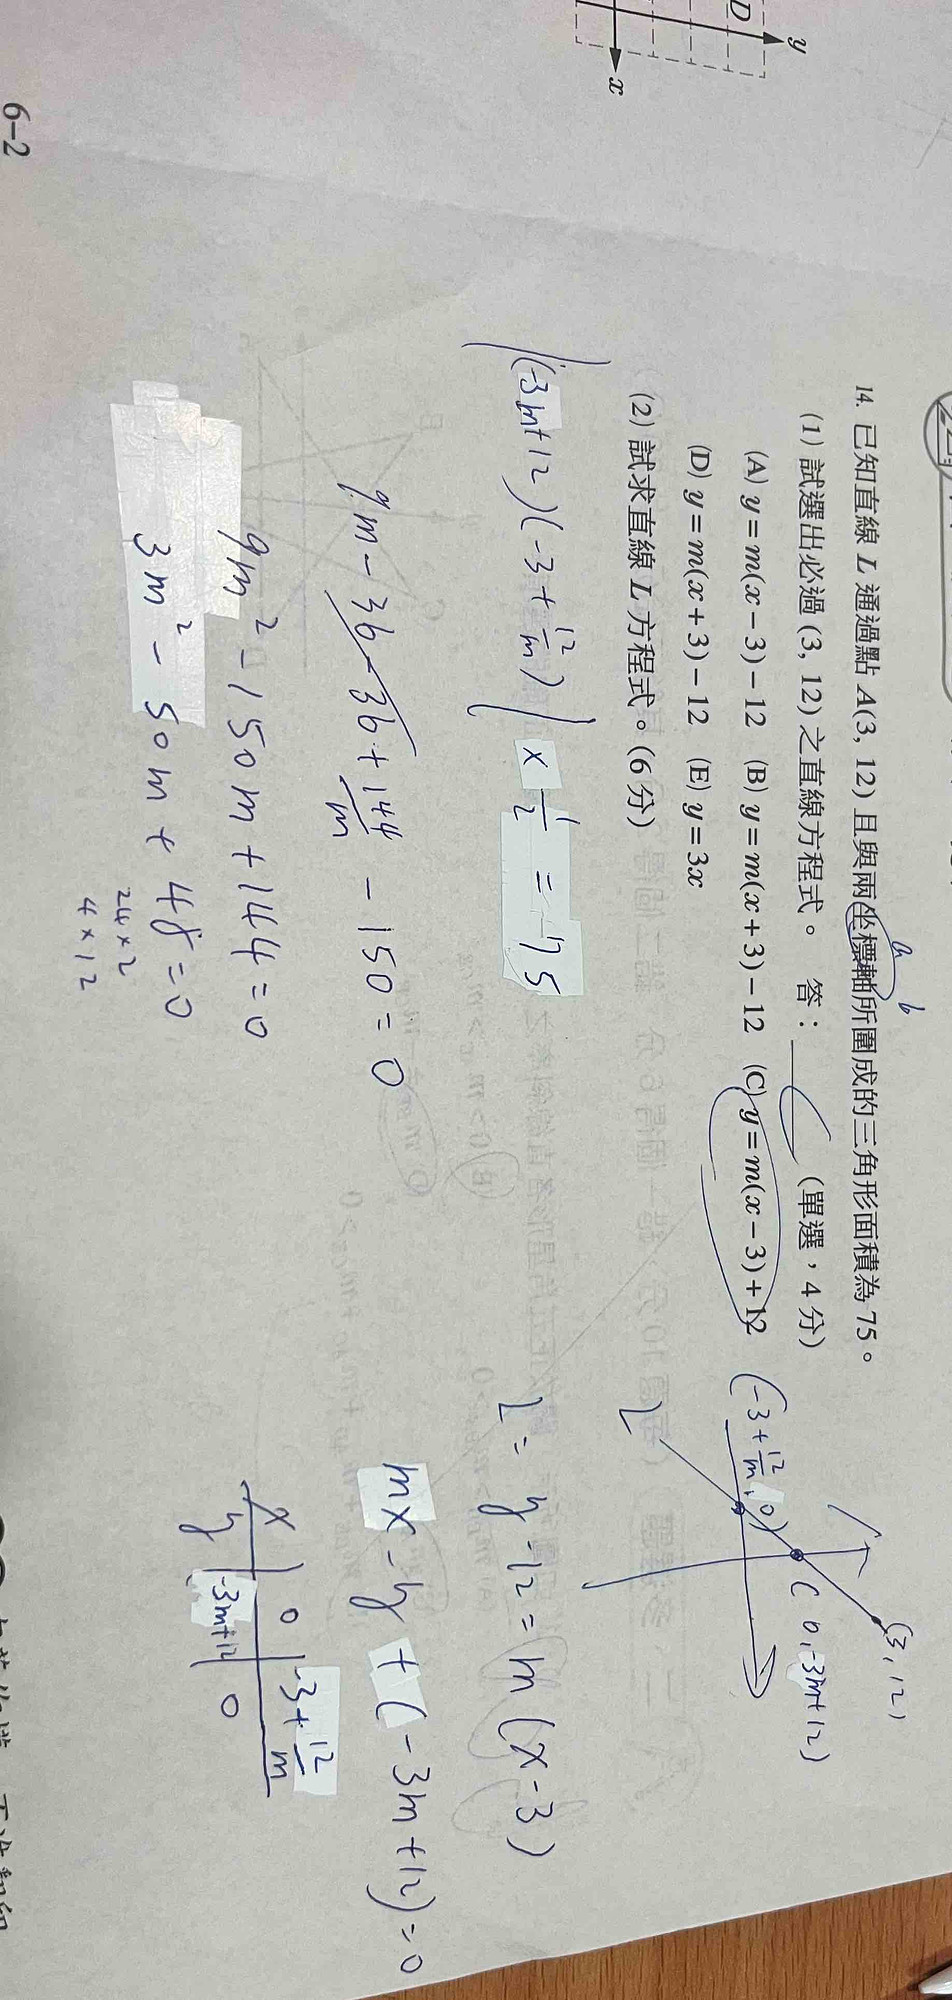 D
y
x
14. 已知直線 L 通過點 A(3, 12) 且與兩坐標軸所圍成的三角形面積為 75。
a
b
(1) 試選出必過 (3, 12) 之直線方程式。 答：C (單選，4 分)
(A) y = m(x − 3) − 12 (B) y = m(x + 3) − 12 (C) y = m(x − 3) + 12
(D) y = m(x + 3) − 12 (E) y = 3x
(2) 試求直線 L 方程式。(6 分)
(3, 12)
(0, -3m+12)
(-3+12/m, 0)
L
|(-3m+12)(-3+12/m)| × 1/2 = 75
9m - 36 - 36 + 144/m - 150 = 0
9m² - 150m + 144 = 0
3m² - 50m + 48 = 0
24×2
4×12
L = y - 12 = m(x - 3)
mx - y + (-3m+12) = 0
x | 0 | -3+12/m
y | -3m+12 | 0
6–2